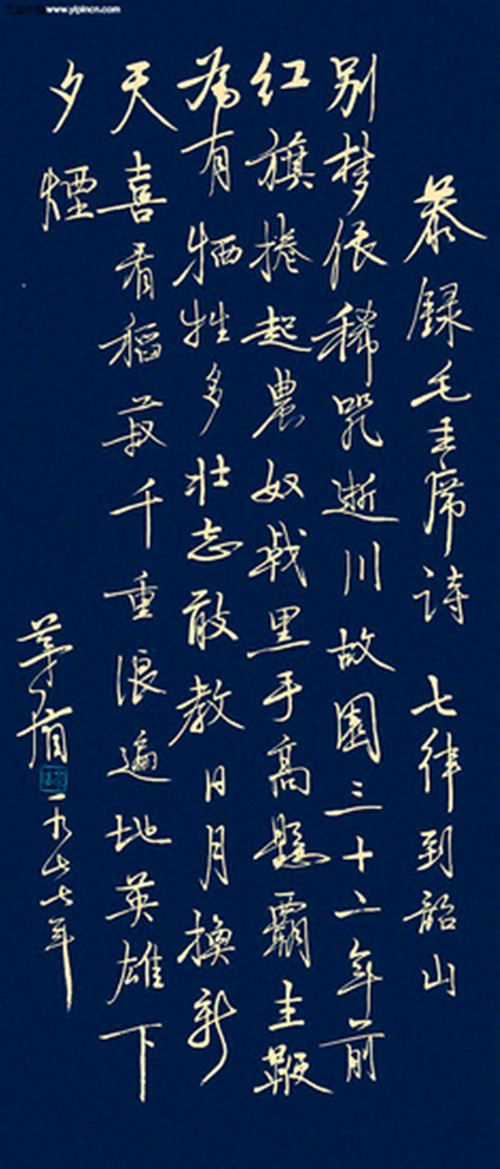 www.yipincn.com
恭録毛主席诗 七律到韶山
别梦依稀咒逝川故園三十二年前
红旗捲起農奴戟黑手高懸霸主鞭
為有牺牲多壮志敢教日月换新
天喜看稻菽千重浪遍地英雄下
夕煙
茅盾 一九七年